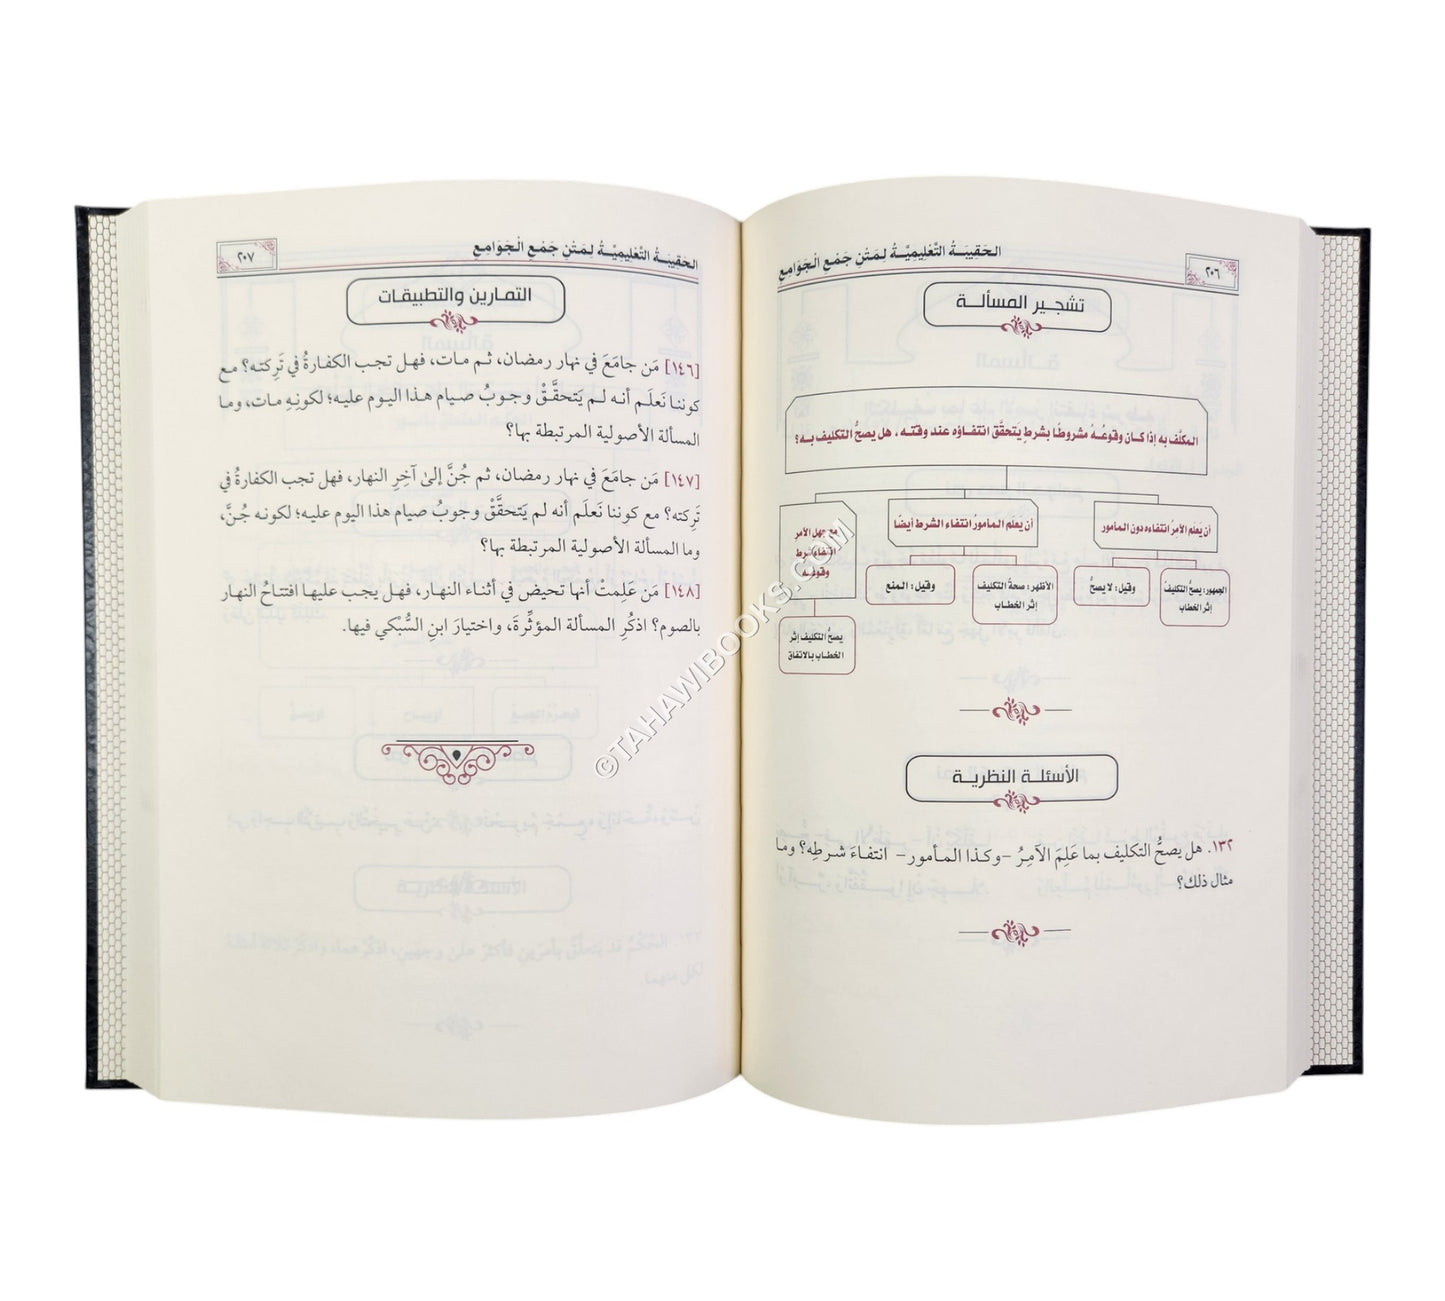 الحَقِيبَةُ التَّعْلِيمِيَّةُ لِمَتْنِ جَمْعِ الْجَوَامِعِ
٢٠٦
تشجير المسألة
المكلَّف به إذا كان وقوعُهُ مشروطًا بشرطٍ يَتحقَّق انتفاؤه عند وقتـه، هل يصحُّ التكليف به؟
أن يَعلَم الآمرُ انتفاءه دون المـأمور
أن يَعلَم المـأمورُ انتفاء الشرط أيضًا
مع جهل الآمر
انتفاء شرط
وقوعـه
الجمهور: يصحُّ التكليفُ
إثر الخطاب
وقيل: لا يصحُّ
الأظهر: صحةُ التكليف
إثر الخطاب
وقيل: المنع
يصحُّ التكليف إثر
الخطاب بالاتفاق
الأسئلة النظرية
١٣٢. هل يصحُّ التكليف بما عَلِمَ الآمِرُ -وكذا المـأمور- انتفاءَ شرطِه؟ وما
مثال ذلك؟
الحَقِيبَةُ التَّعْلِيمِيَّةُ لِمَتْنِ جَمْعِ الْجَوَامِعِ
٢٠٧
التمارين والتطبيقات
[١٤٦] مَن جامَعَ في نهار رمضان، ثم مات، فهل تجب الكفارةُ في تَرِكته؟ مع
كوننا نَعلَم أنه لم يَتحقَّقْ وجوبُ صيام هذا اليوم عليه؛ لكونِهِ مات، وما
المسألة الأصولية المرتبطة بها؟
[١٤٧] مَن جامَعَ في نهار رمضان، ثم جُنَّ إلىٰ آخِرِ النهار، فهل تجب الكفارةُ في
تَرِكته؟ مع كوننا نَعلَم أنه لم يَتحقَّقْ وجوبُ صيام هذا اليوم عليه؛ لكونه جُنَّ،
وما المسألة الأصولية المرتبطة بها؟
[١٤٨] مَن عَلِمتْ أنها تحيض في أثناء النهار، فهل يجب عليها افتتاحُ النهار
بالصوم؟ اذكُرِ المسألة المؤثِّرةَ، واختيارَ ابنِ السُّبْكي فيها.
©TAHAWIBOOKS.COM